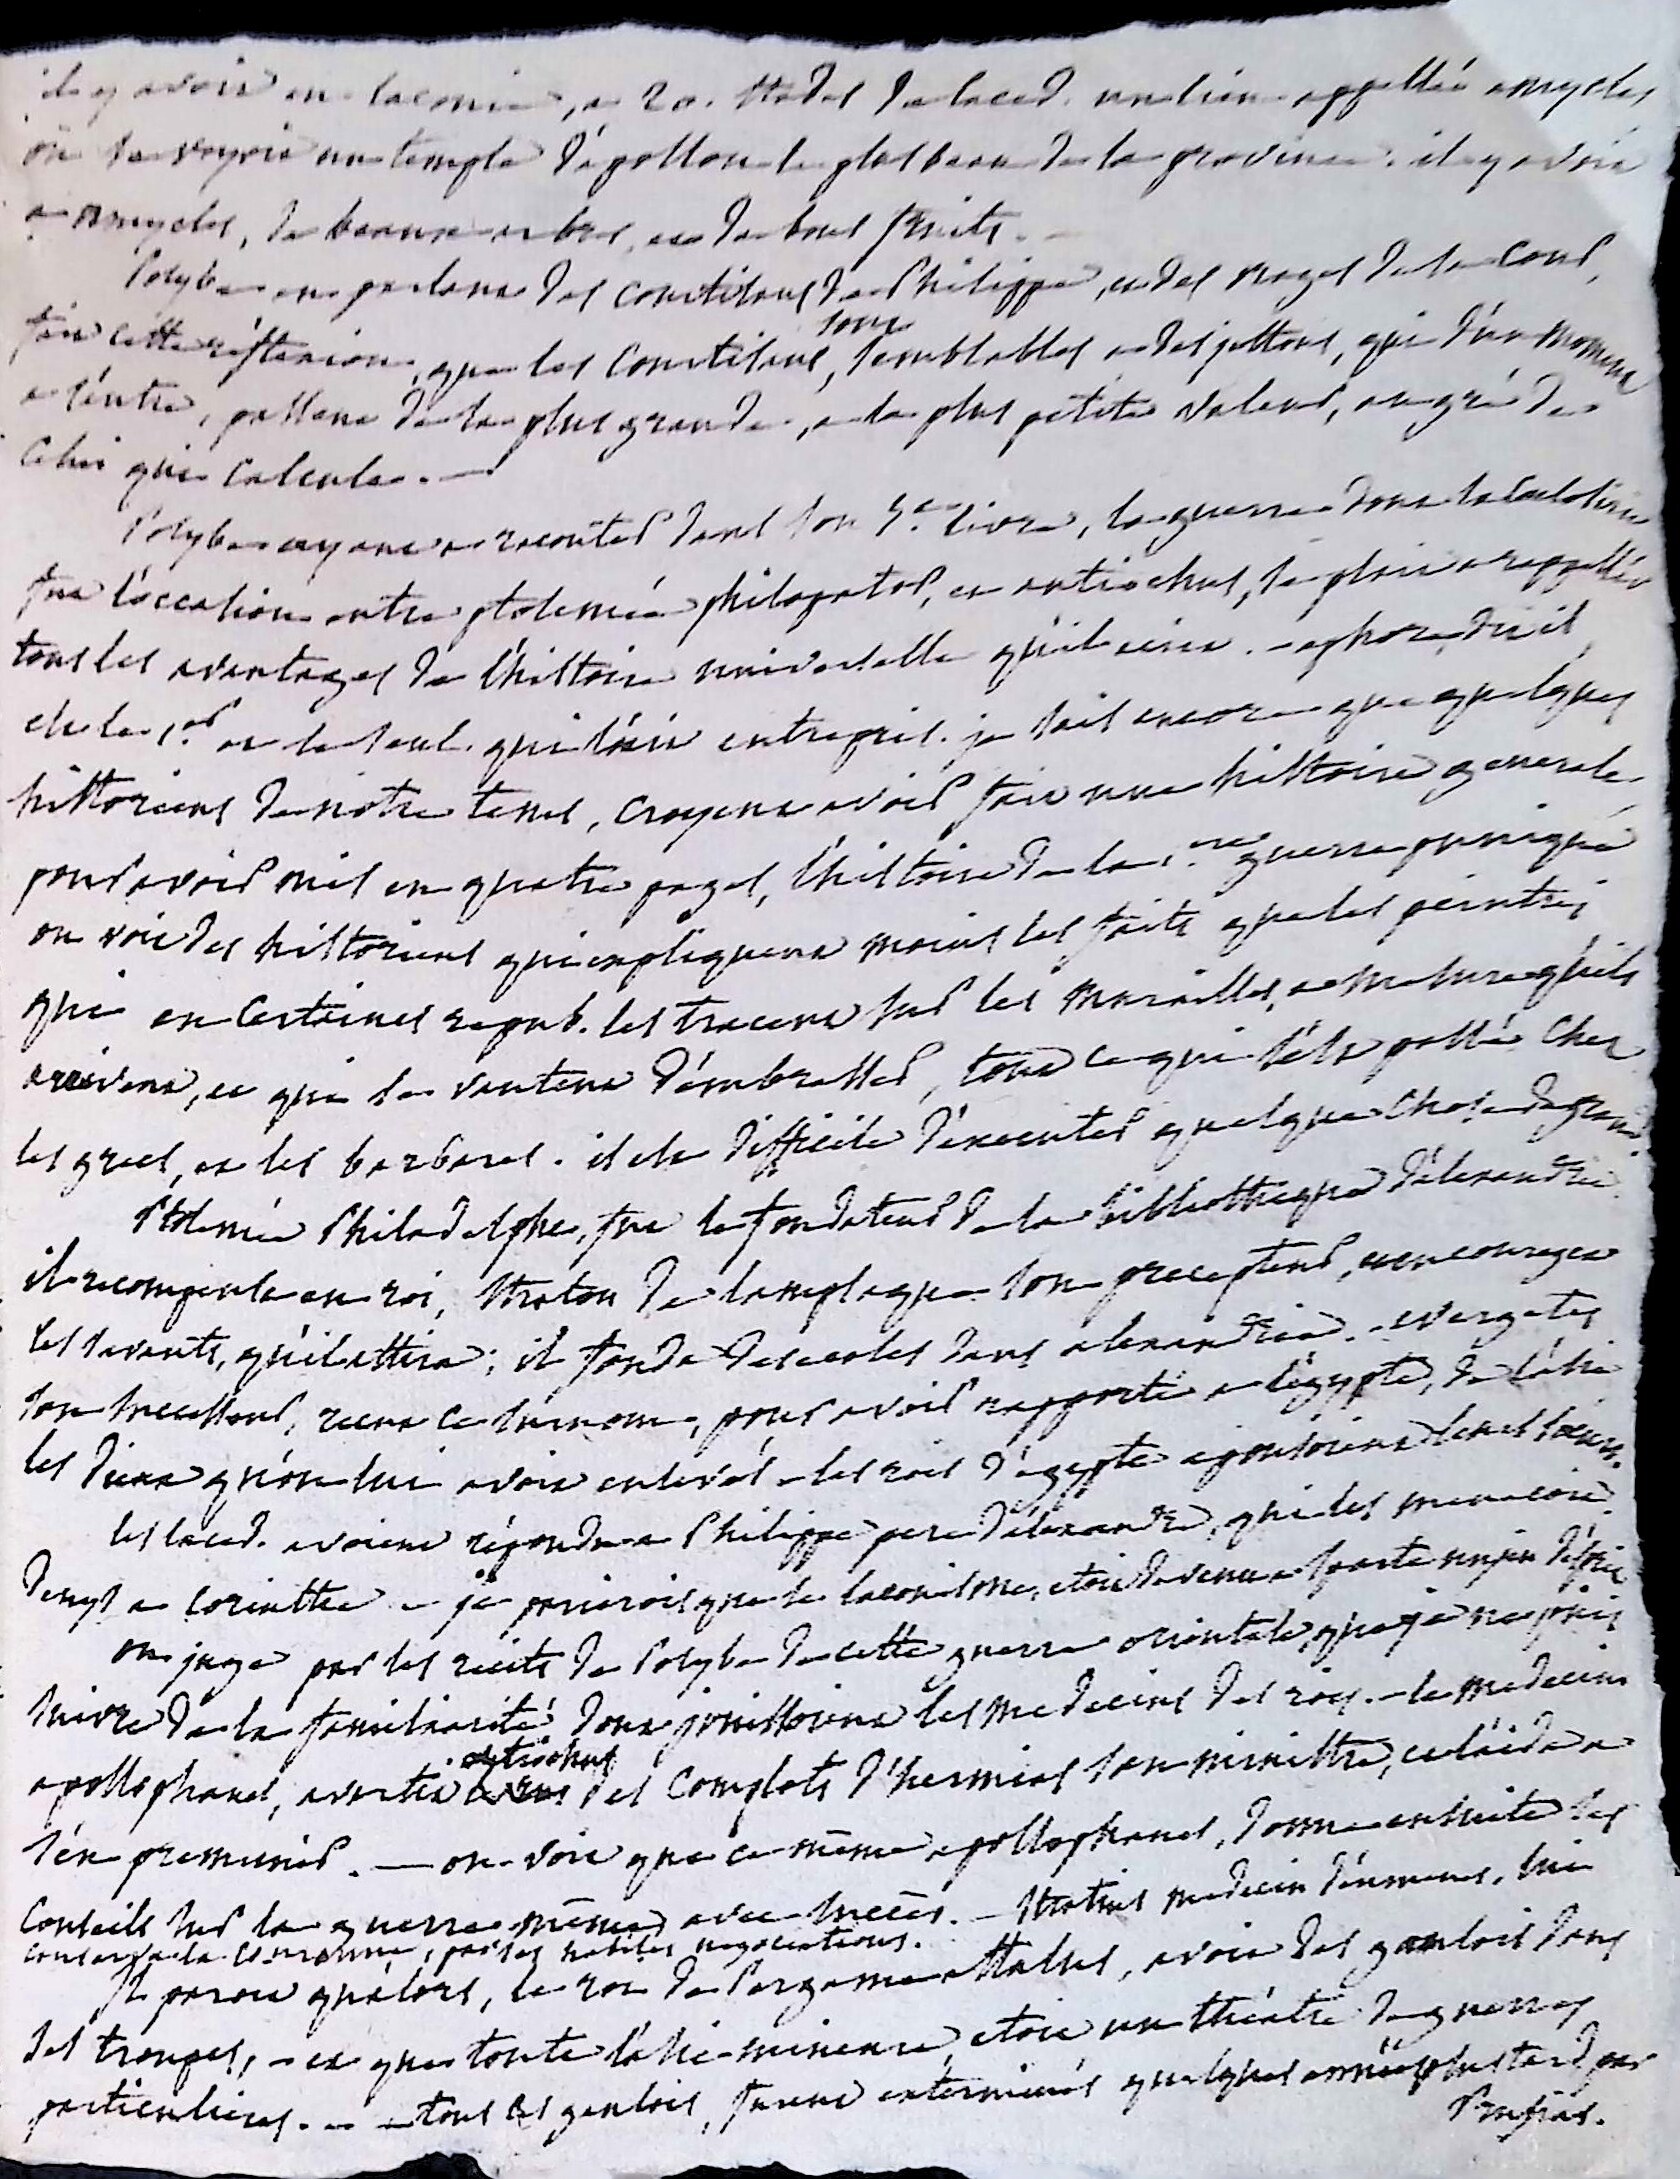 il y avoit en laconie, a 20. stades de laced. un lieu appellée amycles
où se voyoit un temple d'apollon le plus beau de la province. il y avoit
a amycles, de beaux arbres, et de bons fruits. —
Polybe en parlant des courtisans de Philippe, et des usages de la cour,
fait cette réflexion, que les courtisans, sont semblables a des jettons, qui d'un moment
a l'autre, passent de la plus grande, a la plus petite valeur, au gré de
celui qui calcule. —
Polybe ayant a raconter dans son 5.e livre, la guerre dont la Coelesirie
fut l'occasion entre ptolemée philopator, et antiochus, se plait a rappeller
tous les avantages de l'histoire universelle qu'il écrit. – ephore, dit il,
est le 1.er et le seul qui l'ait entrepris. je sais encore que quelques
historiens de notre tems, croyent avoir fait une histoire generale,
pour avoir mis en quatre pages, l'histoire de la 1.ere guerre punique
on voit des historiens qui expliquent moins les faits que les peintres
qui en certaines repub. les tracent sur les murailles, a mesure qu'ils
arrivent, et qui se vantent d'embrasser, tout ce qui s'est passé chez
les grecs, et les barbares. il est difficile d'executer quelque chose de grand.
Ptolemée Philadelphe, fut le fondateur de la bibliotheque d'alexandrie.
il recompensa en roi, Straton de lampsaque son precepteur, et encouragea
les savants, qu'il attira; il fonda des ecoles dans alexandrie. – evergetes
son successeur, recut ce surnom, pour avoir rapporté a l'égypte, de l'asie
les dieux qu'on lui avoit enlevés – les rois d'egypte epousoient leurs soeurs.
les laced. avoient répondu a Philippe pere d'alexandre, qui les menacoit
Denys a corinthe – je parierois que le laconisme, etoit devenu a sparte un jeu d'esprit
on juge par les récits de Polybe de cette guerre orientale, que je ne puis
suivre de la familiarité dont jouissoient les medecins des rois. – le medecin
apollophanes, avertit antiochus des complots d'hermias son ministre, et l'aida a
s'en premunir. — on voit que ce même apollophanes, donna ensuite des
conseils sur la guerre même, avec succès. – Stratius medecin d'eumenes, lui
conserva la couronne, par ses habiles negociations.
Il paroit qu'alors, le roi de Pergame attalus, avoit des gaulois dans
ses troupes, – et que toute l'asie-mineure, etoit un théatre de guerres
particulieres. – – tous les gaulois, furent exterminés quelques années plus tard par
Prusias.